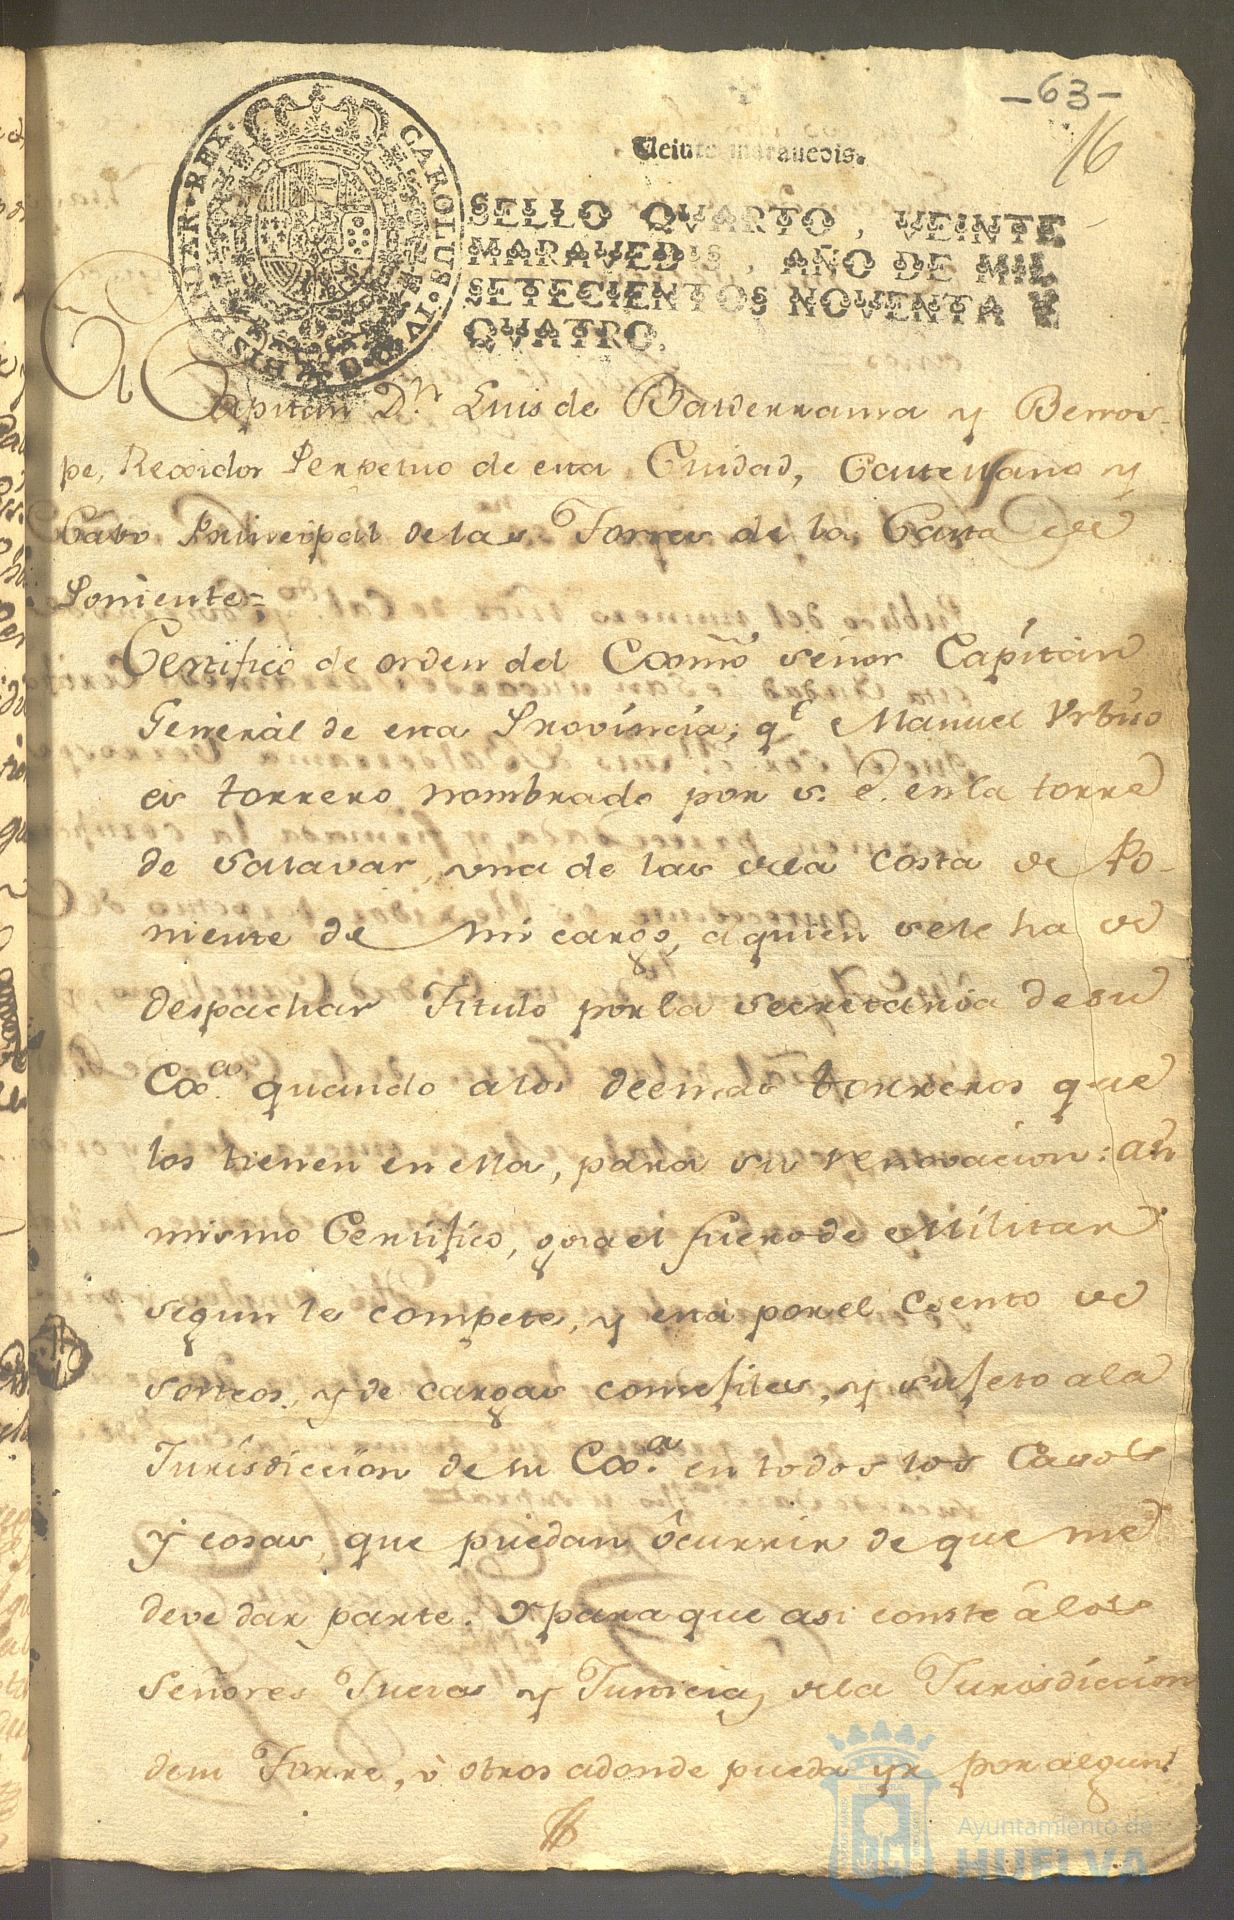 -63-
16
Veinte maravedis.
CAROLUS·IV·D·G·HISPANIAR·REX·
SELLO QVARTO, VEINTE
MARAVEDIS, AÑO DE MIL
SETECIENTOS NOVENTA Y
QVATRO.
Capitan Dn. Luis de Balderrama y Berros-
pe, Rexidor Perpetuo de esta Ciudad, Castellano y
Cabo Principal de las Torres de la Costa de
Poniente=
Certifico de orden del Exmô señor Capitan
General de esta Provincia; qe. Manuel Urbino
es torrero nombrado por S. E. en la torre
de Salavar, una de las dela costa de Po-
niente de mi cargo, a quien se le ha de
despachar Titulo por la Secretaria de su
Exa. quando a los demas torreros que
los tienen en ella, para su renovacion: asi
mismo Certifico, goza el fuero de Militar
segun le compete, y está por el esento de
sorteos, y de cargas consejiles, y sujeto a la
Jurisdiccion de su Exa. en todos los Casos
y cosas, que puedan ôcurrir de que me
deve dar parte. Y para que asi conste â los
Señores Jueces y Justicias dela Jurisdiccion
de su Torre, ò otros adonde pueda yr por algun
Ayuntamiento de
HUELVA